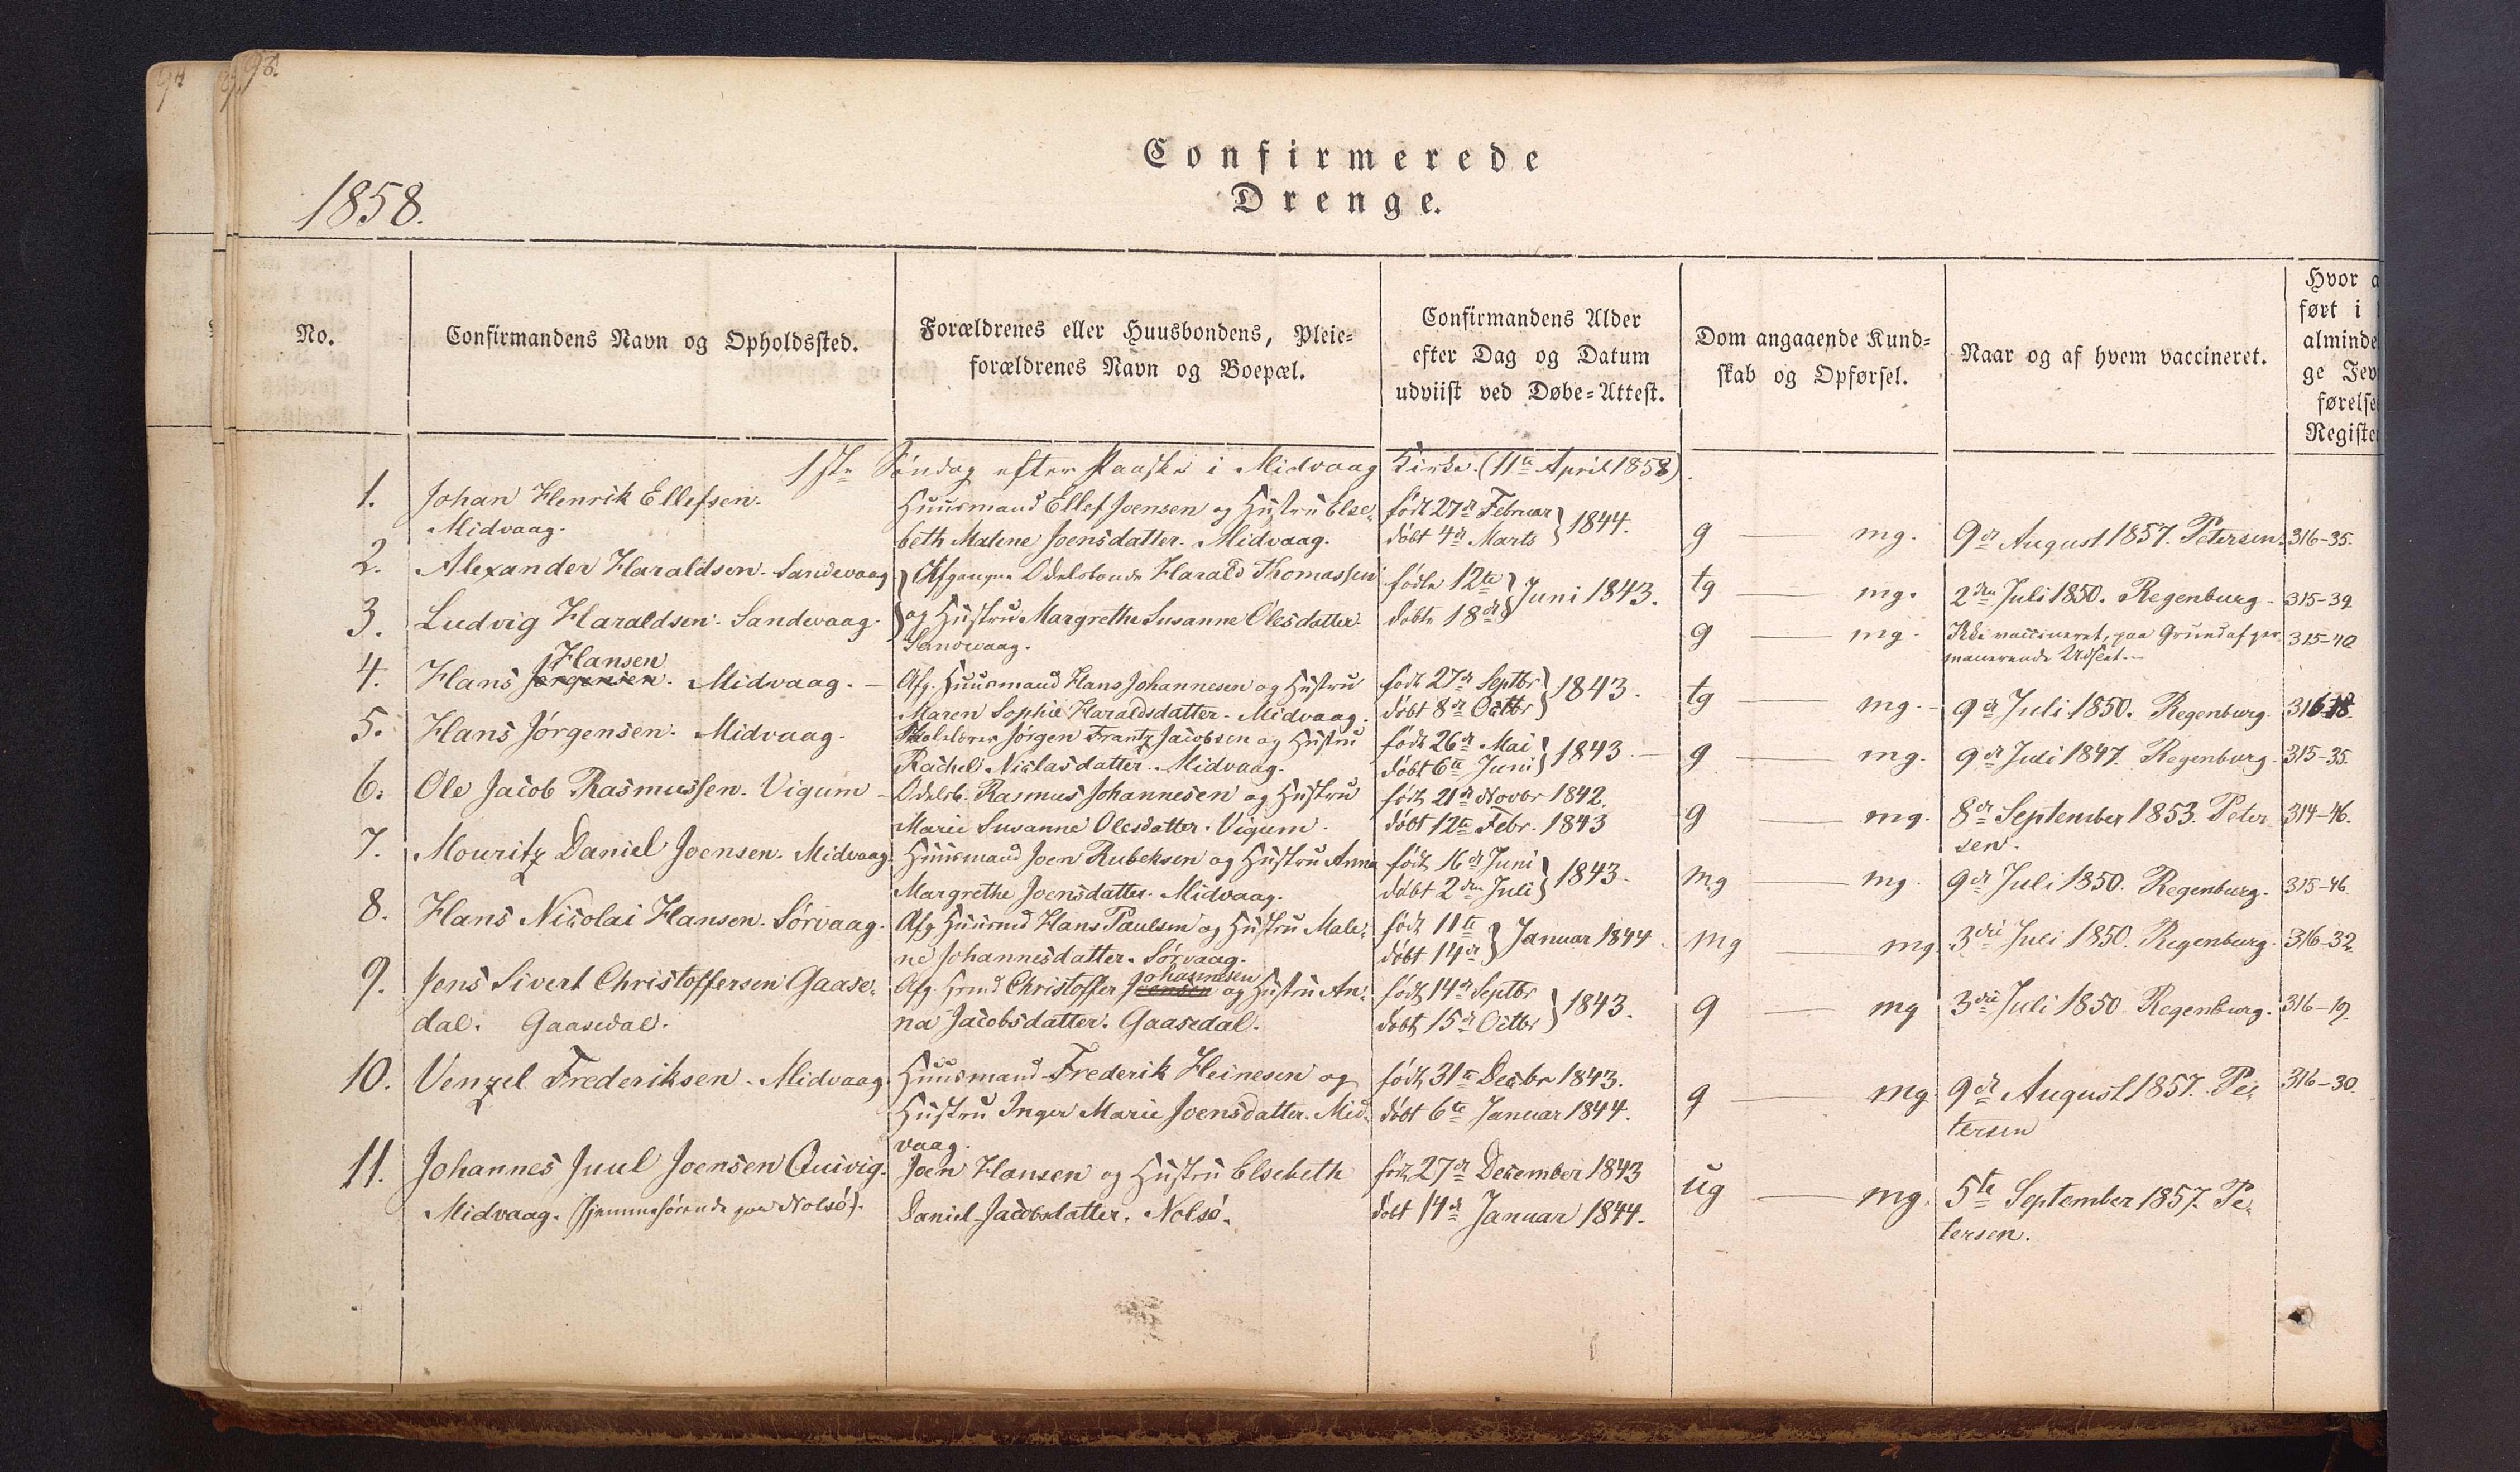 93.
Confirmerede
Drenge.
1858.
No.
Confirmandens Navn og Opholdssted.
Forældrenes eller Huusbondens, Pleie=
forældrenes Navn og Boepæl.
Confirmandens Alder
efter Dag og Datum
udviist ved Døbe=Attest.
Dom angaaende Kund=
skab og Opførsel.
Naar og af hvem vaccineret.
Hvor a
ført i
alminde
ge Jev
førelse
Registe
1ste Søndag efter Paaske i Midvaag Kirke. (11te April 1858).
1. Johan Henrik Ellefsen.
Midvaag.
Huusmand Ellef Joensen og Hustru Else-
beth Malene Joensdatter. Midvaag.
født 27de Februar
døbt 4de Marts } 1844.
g — mg.
9de August 1857. Petersen.
316-35.
2. Alexander Haraldsen. Sandevaag
} Afgangne Odelsbonde Harald Thomassen
fødte 12te
tg — mg.
2den Juli 1850. Regenburg.
315-39
3. Ludvig Haraldsen. Sandevaag.
og Hustru Margrethe Susanne Olesdatter.
Sandevaag.
døbte 18de } Juni 1843.
g — mg.
Ikke vaccineret, paa Grund af per-
manerende Udslet.
315-40
4. Hans Jørgensen. Midvaag.
Hansen
Afg. Huusmand Hans Johannesen og Hustru
Maren Sophie Haraldsdatter. Midvaag.
født 27de Septbr
døbt 8de Octbr } 1843.
tg — mg.
9de Juli 1850. Regenburg.
316-18.
5. Hans Jørgensen. Midvaag.
Skolelærer Jørgen Frantz Jacobsen og Hustru
Rachel Niclasdatter. Midvaag.
født 26de Mai
døbt 6te Juni } 1843.
g — mg.
9de Juli 1847. Regenburg.
315-35.
6. Ole Jacob Rasmussen. Vigum
Odelsb. Rasmus Johannesen og Hustru
Marie Susanne Olesdatter. Vigum.
født 21de Novbr 1842.
døbt 12te Febr. 1843
g — mg.
8de September 1853. Peter-
sen.
314-46.
7. Mouritz Daniel Joensen. Midvaag.
Huusmand Joen Rubeksen og Hustru Anna
Margrethe Joensdatter. Midvaag.
født 16de Juni
døbt 2den Juli } 1843.
mg — mg.
9de Juli 1850. Regenburg.
315-46.
8. Hans Nicolai Hansen. Sørvaag.
Afg Huusmd Hans Paulsen og Hustru Male-
ne Johannesdatter. Sørvaag.
født 11te
døbt 14de } Januar 1844.
mg — mg.
3die Juli 1850. Regenburg.
316-32.
9. Jens Sivert Christoffersen Gaase-
dal. Gaasedal.
Afg. Hmd Christoffer Joensen og Hustru An-
Johannesen
na Jacobsdatter. Gaasedal.
født 14de Septbr
døbt 15de Octbr } 1843.
g — mg
3die Juli 1850 Regenburg.
316-19.
10. Venzel Frederiksen. Midvaag.
Huusmand Frederik Heinesen og
Hustru Inger Marie Joensdatter. Mid-
vaag.
født 31te Decbr 1843.
døbt 6te Januar 1844.
g — mg.
9de August 1857. Pe-
tersen
316-30.
11. Johannes Juul Joensen Quivig.
Midvaag. (hjemmehørende paa Nolsø).
Joen Hansen og Hustru Elsebeth
Daniel-Jacobsdatter. Nolsø.
født 27de December 1843
døbt 14de Januar 1844.
ug — mg.
5te September 1857. Pe-
tersen.